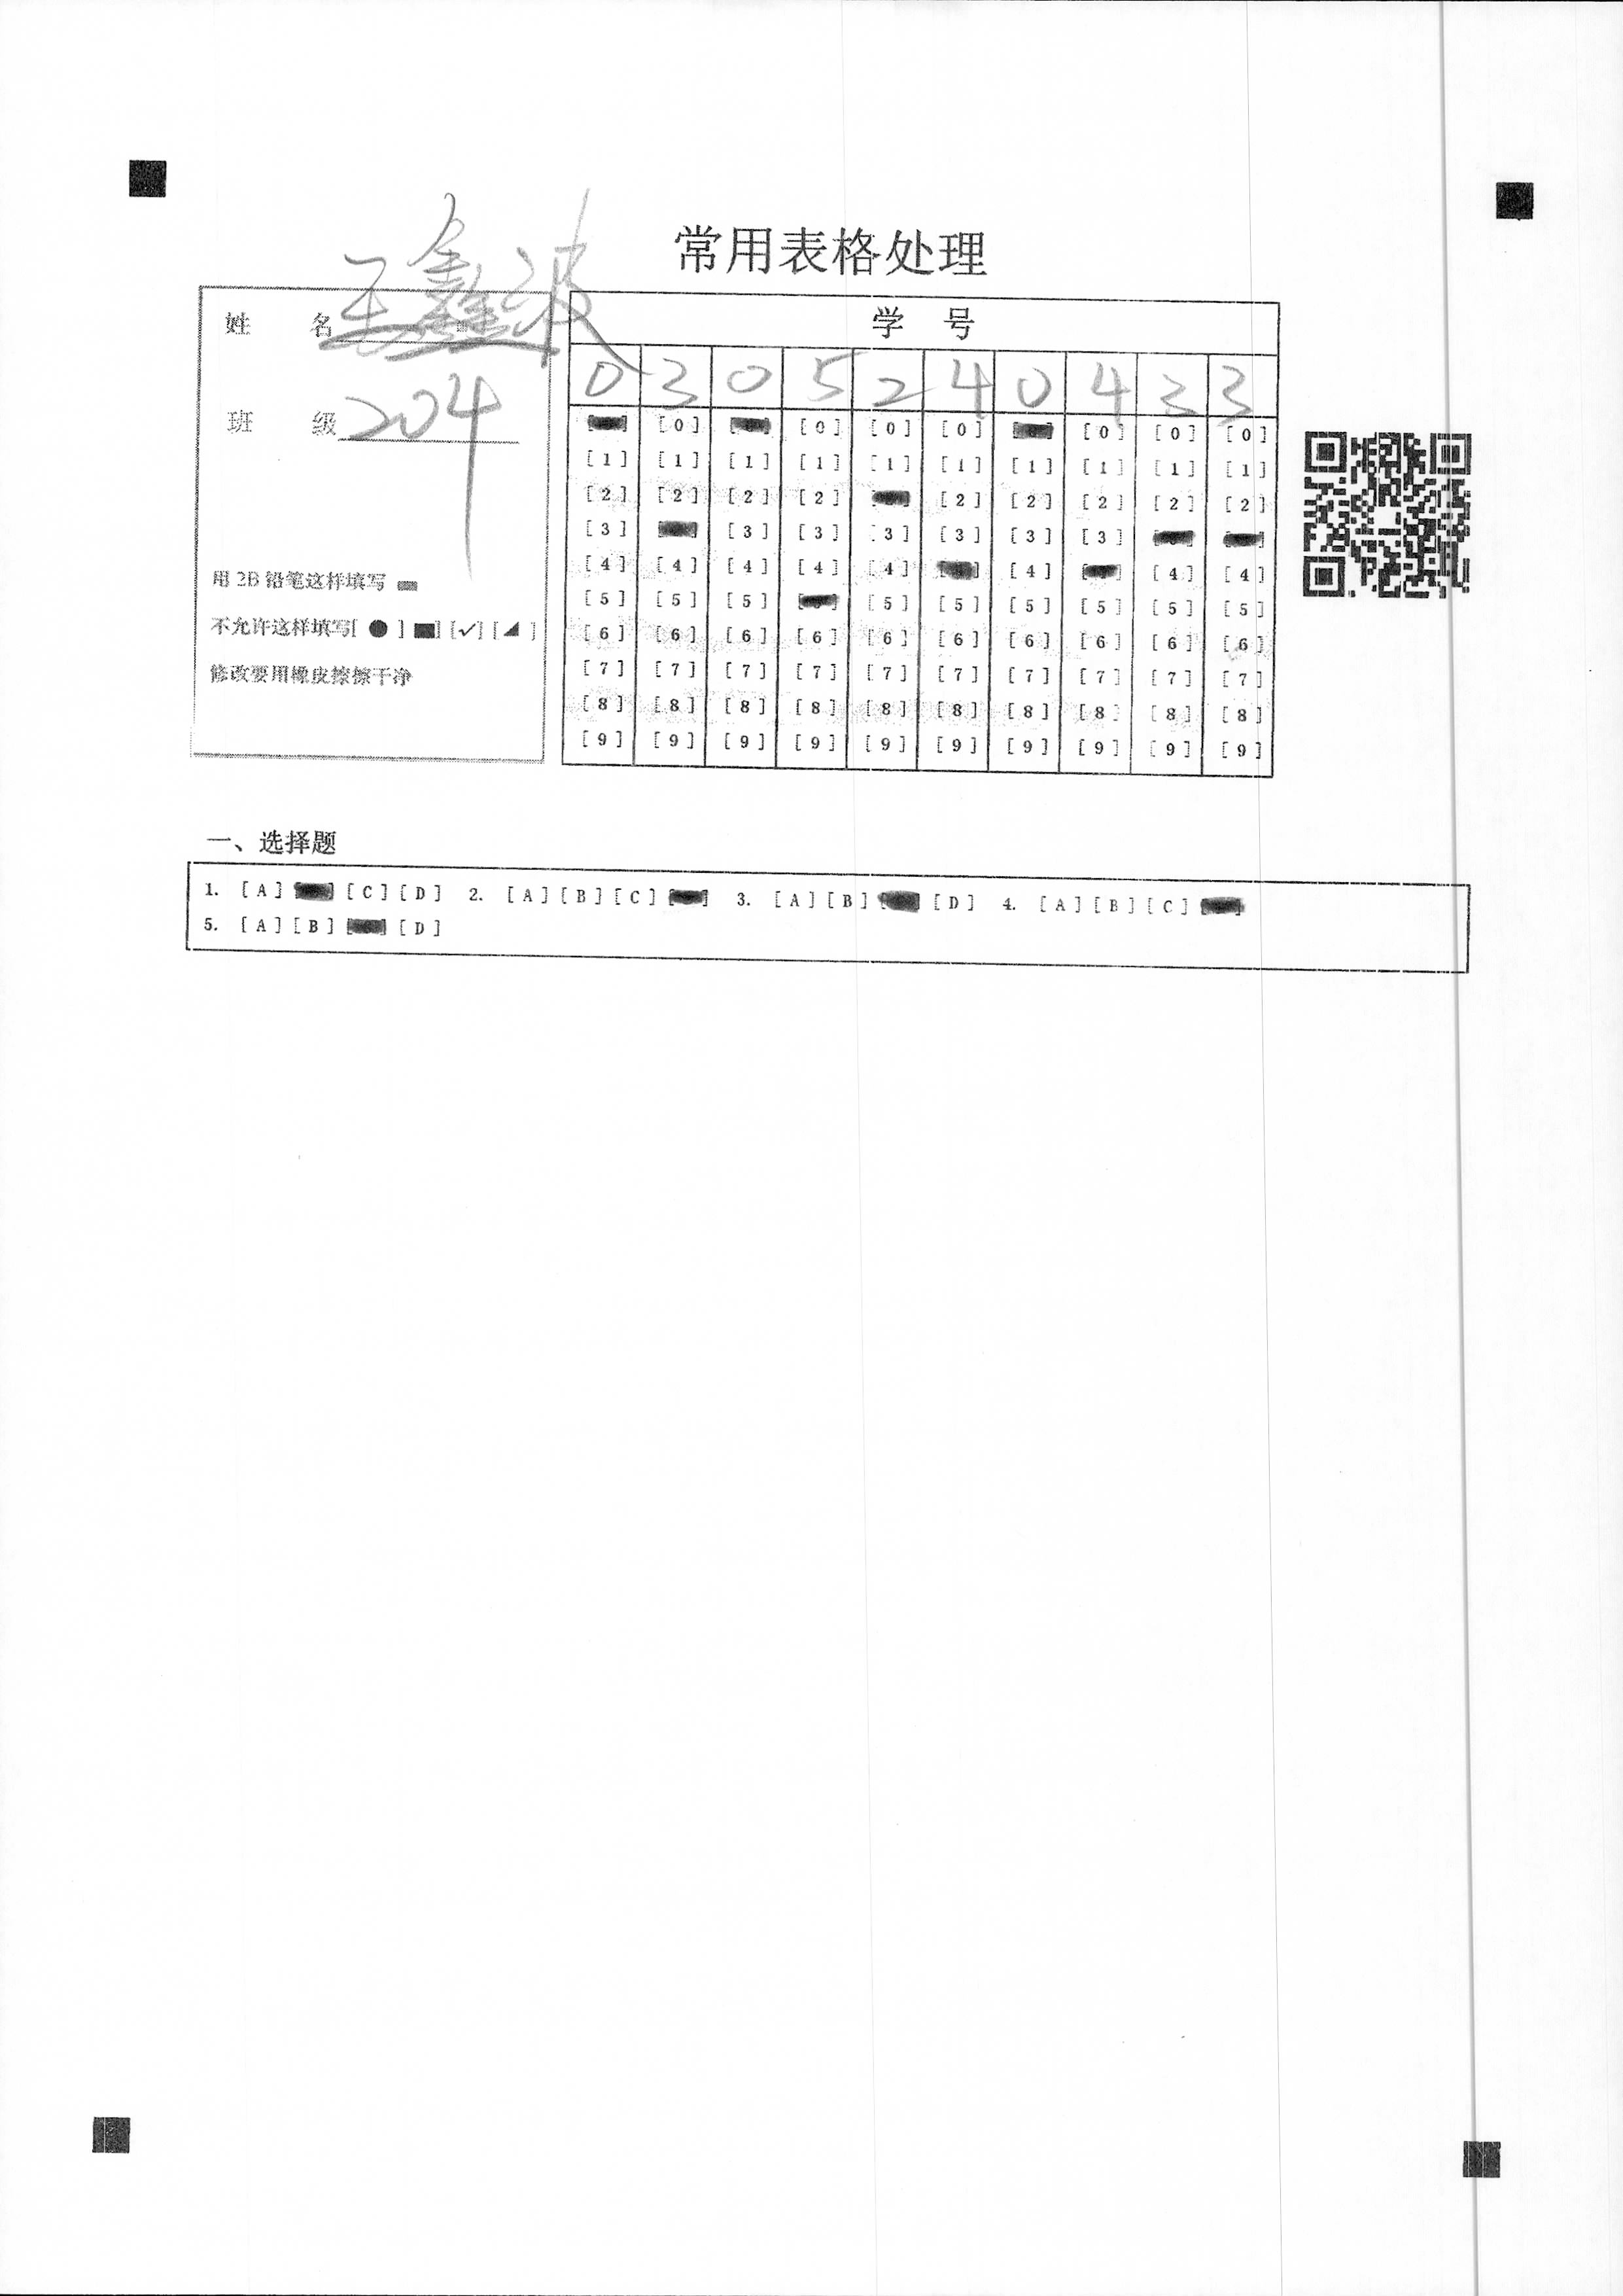 常用表格处理
姓 名 王鑫波
班 级 204
用 2B 铅笔这样填写
不允许这样填写[ ● ] ■] [✓] [◢ ]
修改要用橡皮擦擦干净
学 号
0 3 0 5 2 4 0 4 3 3
[0] [0] [0] [0] [0] [0] [0]
[1] [1] [1] [1] [1] [1] [1] [1] [1] [1]
[2] [2] [2] [2] [2] [2] [2] [2] [2]
[3] [3] [3] [3] [3] [3] [3]
[4] [4] [4] [4] [4] [4] [4] [4]
[5] [5] [5] [5] [5] [5] [5] [5] [5]
[6] [6] [6] [6] [6] [6] [6] [6] [6] [6]
[7] [7] [7] [7] [7] [7] [7] [7] [7] [7]
[8] [8] [8] [8] [8] [8] [8] [8] [8] [8]
[9] [9] [9] [9] [9] [9] [9] [9] [9] [9]
一、选择题
1. [A] [C] [D] 2. [A] [B] [C] 3. [A] [B] [D] 4. [A] [B] [C]
5. [A] [B] [D]